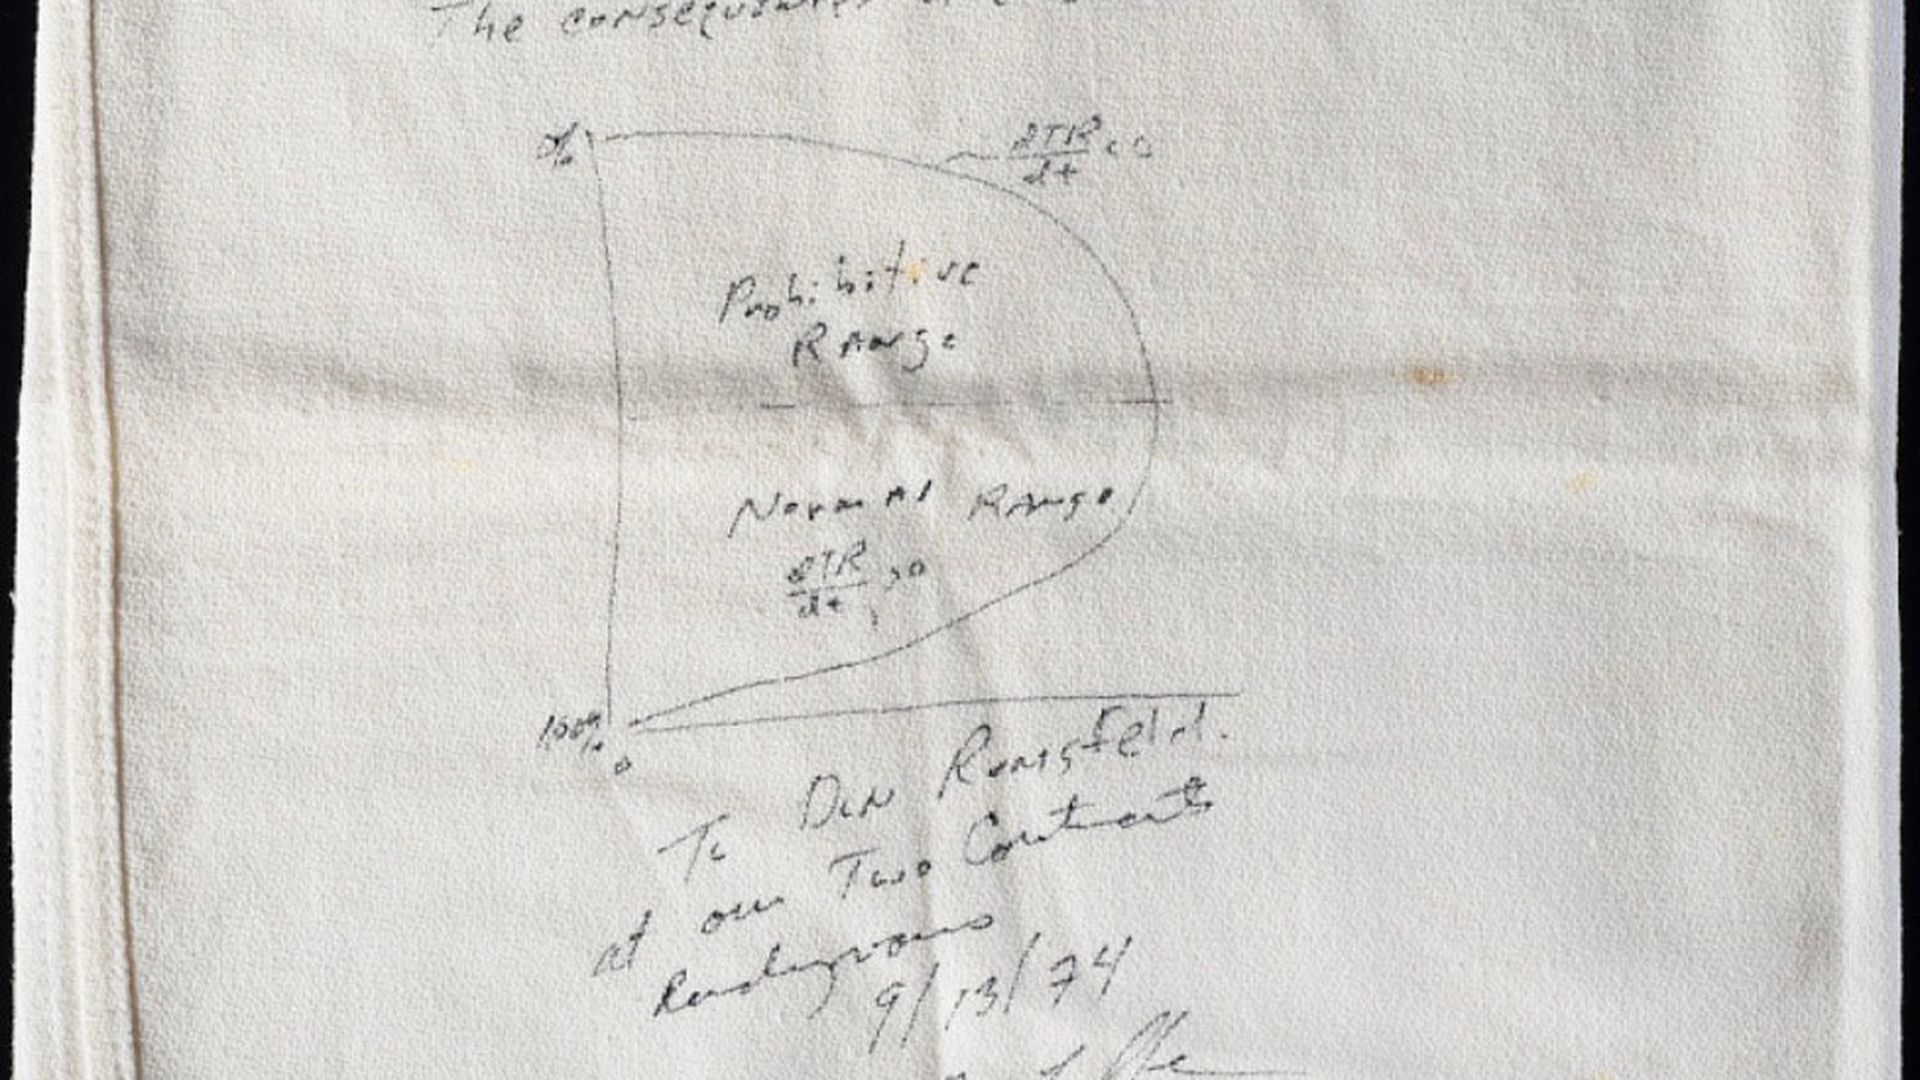 The consequences
%
dTR/dt < 0
Prohibitive
Range
Normal Range
dTR/dt > 0
100%
0
To Don Rumsfeld.
at our Two Continents
Rendezvous
9/13/74